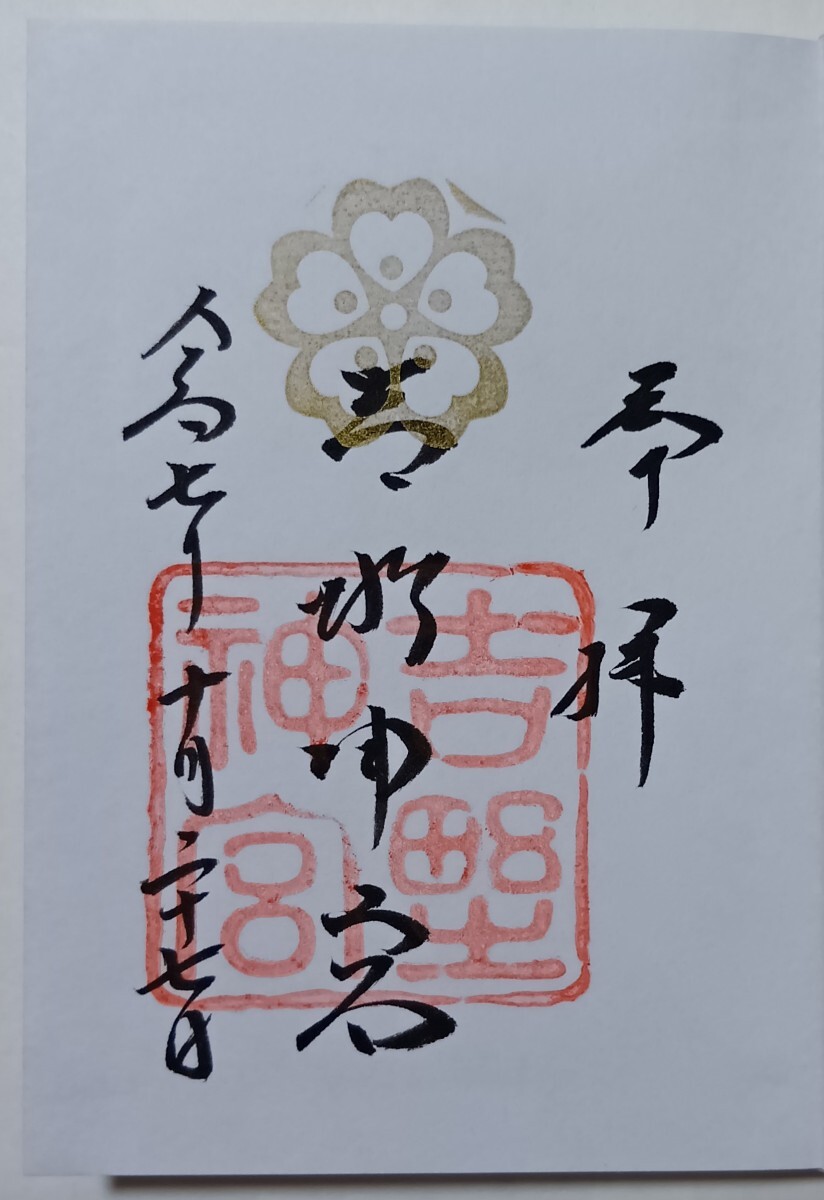 奉拝
吉野神宮
吉野神宮
令和七年十月二十七日